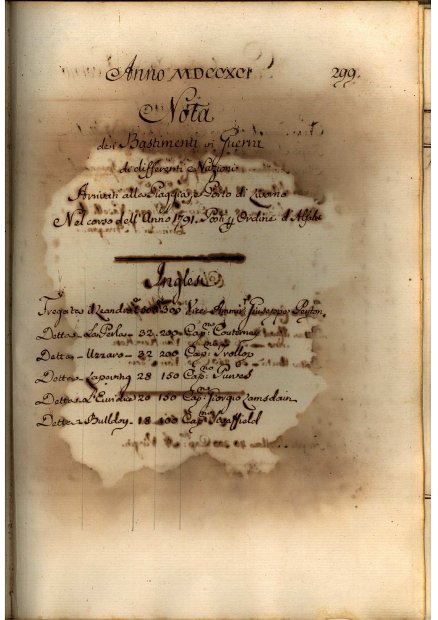 Anno MDCCXCI 299.
Nota
de Bastimenti in Guerra
de differenti Nazioni
Arrivati alla Piaggia e Porto di Livorno
Nel corso dell' Anno 1791. Posti Ordine d'Alfabe
Inglesi
Fregata Leandro 300 Vice Ammir. Giuseppe Peyton.
Detta La Perla 32 200 Cap.no
Detta Uzzaro 32 200 Cap.no Trollop
Detta Lapwing 28 150 Cap.no
Detta L'Euridice 20 150 Cap.no Giorgio Lamsdain
Detta Bulldoy 18 100 Cap.no